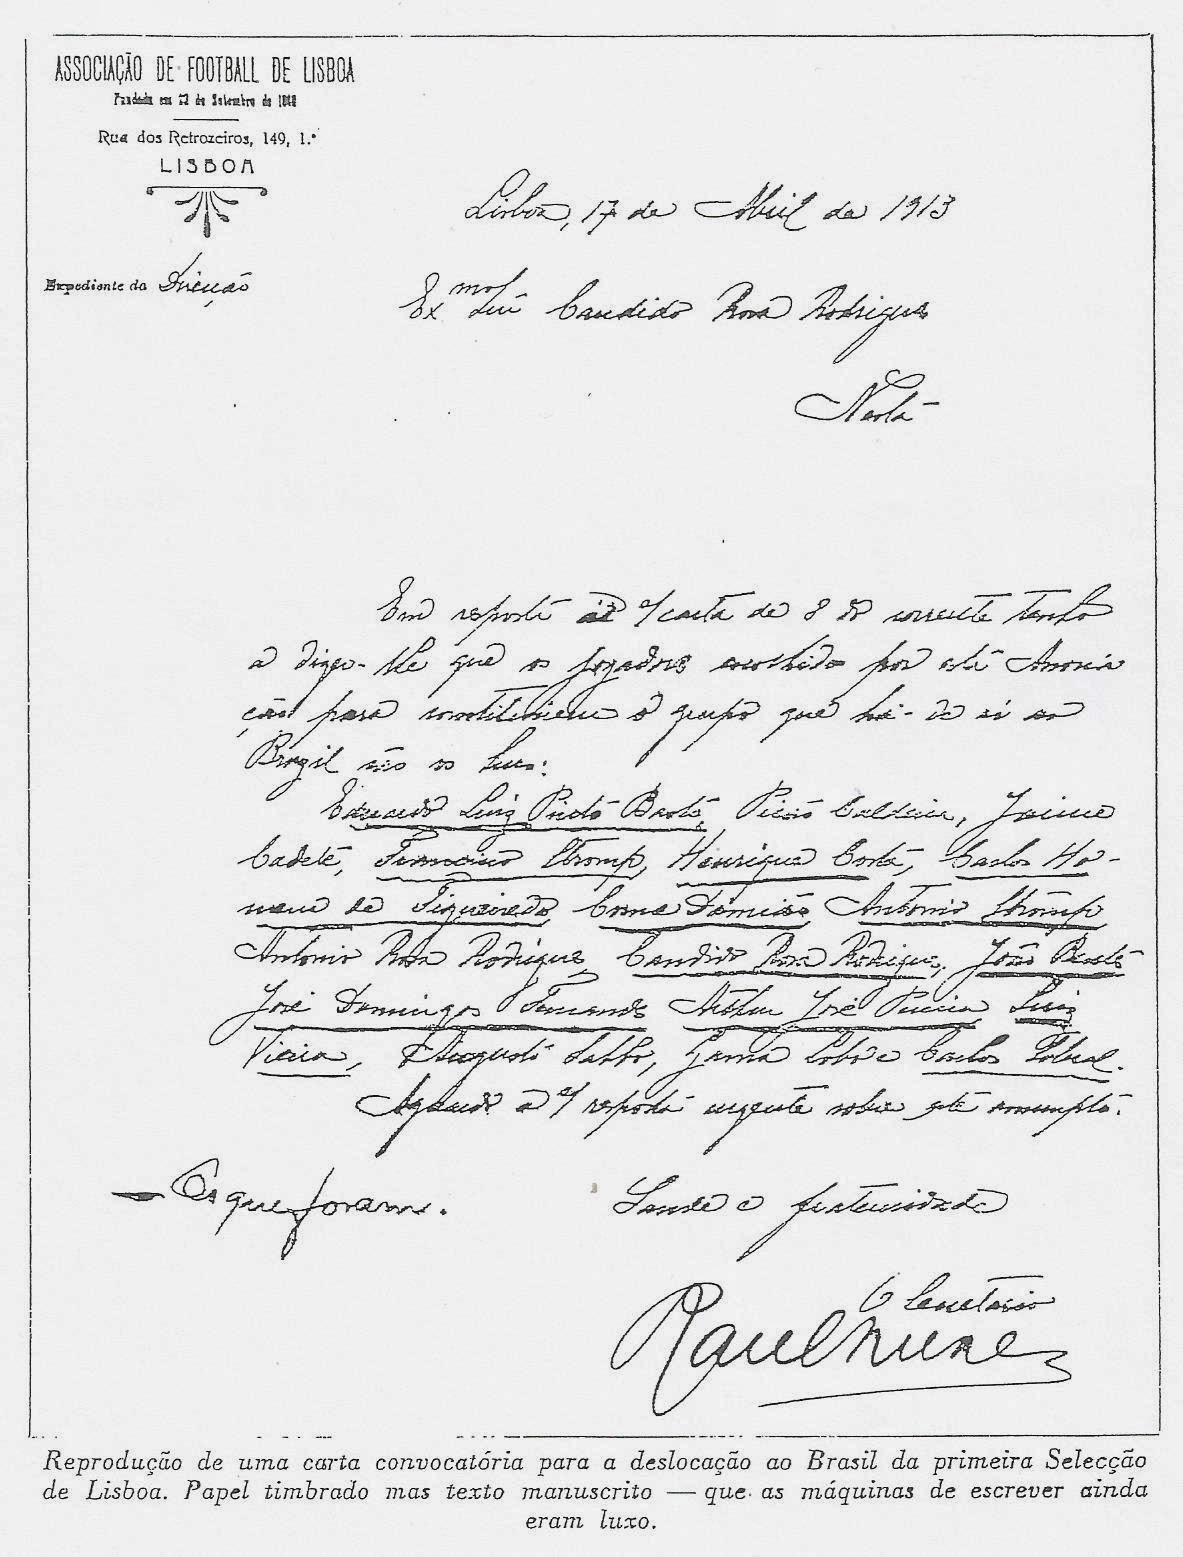 ASSOCIAÇÃO DE FOOTBALL DE LISBOA
Fundada em de Setembro de
Rua dos Retrozeiros, 149, 1.º
LISBOA
Expediente da Direcção
Lisboa, 17 de Abril de 1913
Exmo Snr Candido Rosa Rodrigues
Nesta
Em resposta á v/ carta de 8 do corrente tenho
a dizer-lhe que os jogadores escolhidos por esta Associa
ção para constituirem o grupo que há-de ir ao
Brazil são os Snrs:
Eduardo Luiz Pinto Basto, Picão Caldeira, Jaime
Cadete, Francisco Stromp, Henrique Costa, Carlos Ho-
mem de Figueiredo, Cosme Damião, Antonio Stromp
Antonio Rosa Rodrigues, Candido Rosa Rodrigues, João Bento
José Domingos Fernandes Arthur José Pereira Luiz
Vieira, Augusto Sabbo, Gama Lobo e Carlos Sobral.
Aguardo a v/ resposta urgente sobre este assumpto.
— Os que foram.
Saude e fraternidade
O Secretario
Raul Nunes
Reprodução de uma carta convocatória para a deslocação ao Brasil da primeira Selecção
de Lisboa. Papel timbrado mas texto manuscrito — que as máquinas de escrever ainda
eram luxo.